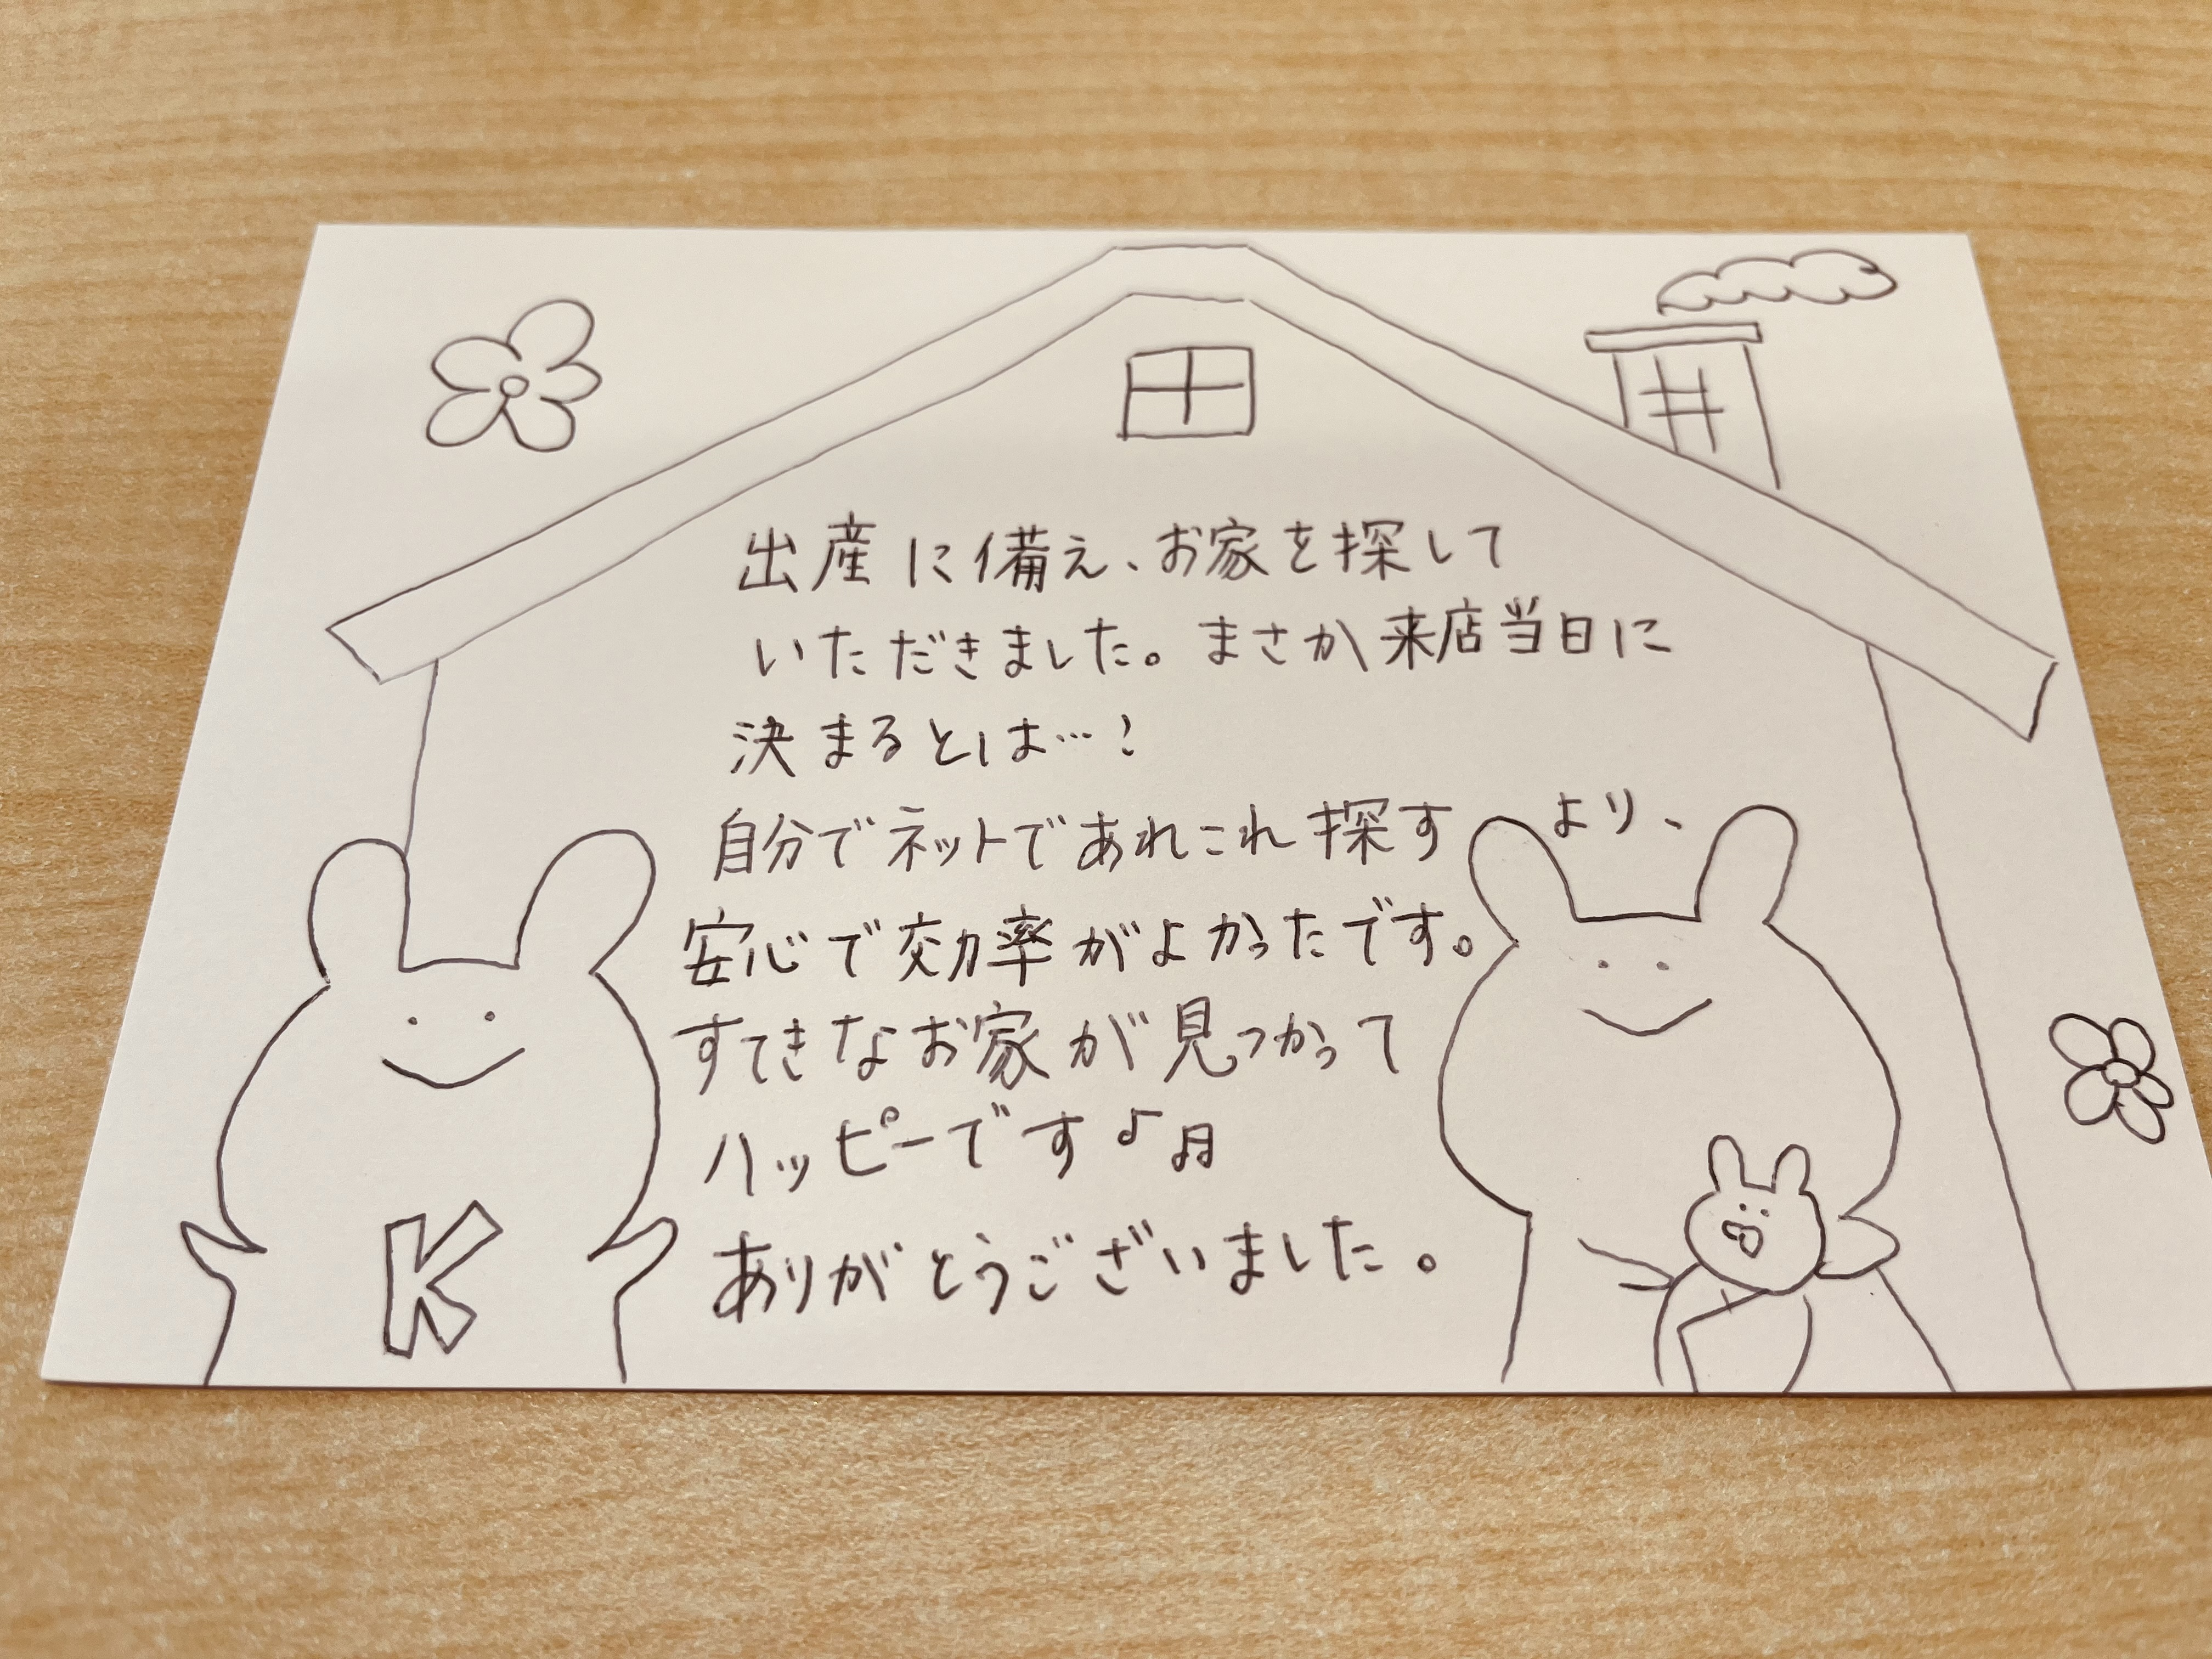 出産に備え、お家を探して
いただきました。まさか来店当日に
決まるとは…!
自分でネットであれこれ探すより、
安心で効率がよかったです。
すてきなお家が見つかって
ハッピーです♪♫
ありがとうございました。
K